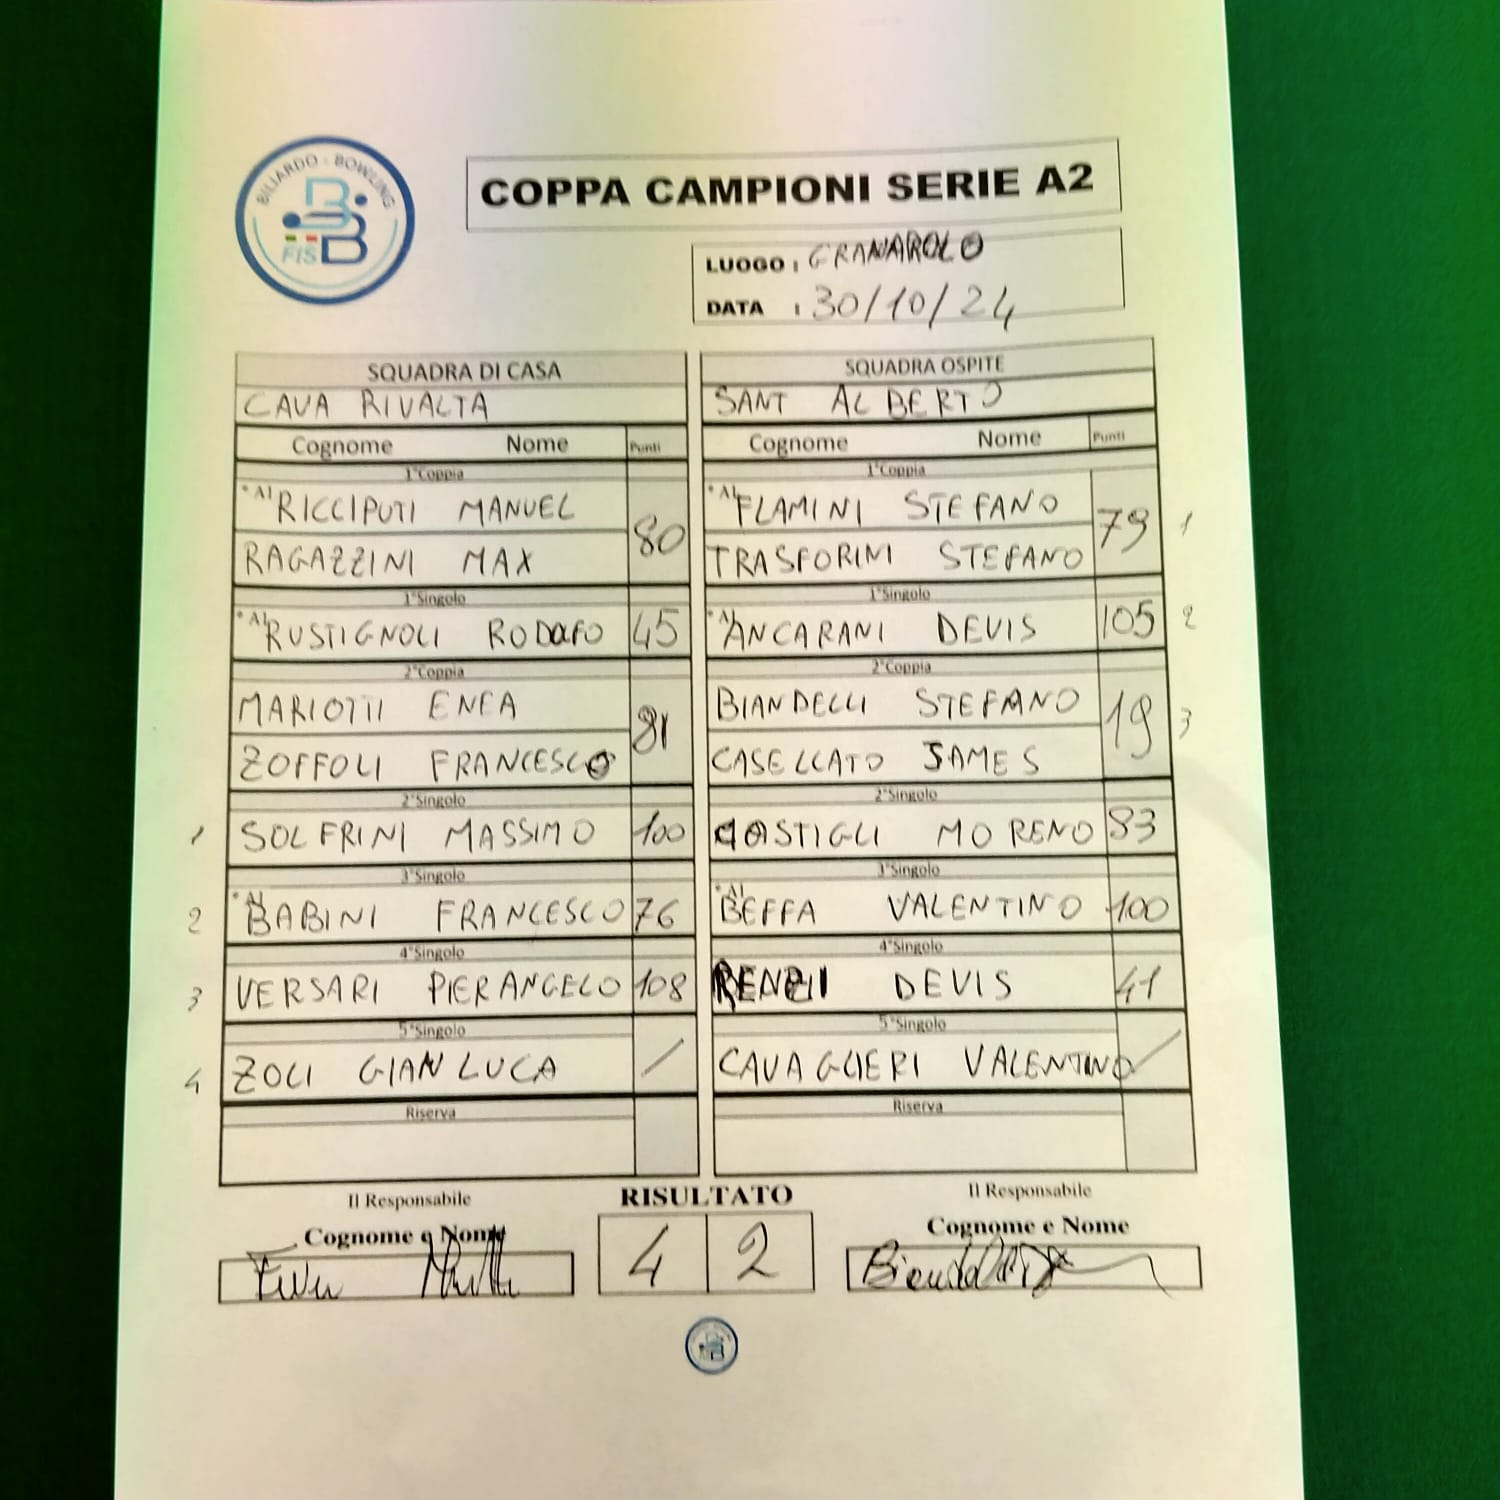 BILIARDO - BOWLING
FISBB
COPPA CAMPIONI SERIE A2
LUOGO : GRANAROLO
DATA : 30/10/24
SQUADRA DI CASA
CAVA RIVALTA
Cognome Nome Punti
1°Coppia
*A1 RICCIPUTI MANUEL 80
RAGAZZINI MAX
1°Singolo
*A1 RUSTIGNOLI RODOLFO 45
2°Coppia
MARIOTTI ENEA 81
ZOFFOLI FRANCESCO
2°Singolo
1 SOLFRINI MASSIMO 100
3°Singolo
2 *A1 BABINI FRANCESCO 76
4°Singolo
3 VERSARI PIERANGELO 108
5°Singolo
4 ZOLI GIANLUCA /
Riserva
SQUADRA OSPITE
SANT ALBERTO
Cognome Nome Punti
1°Coppia
*A1 FLAMINI STEFANO 79 1
TRASFORINI STEFANO
1°Singolo
*A1 ANCARANI DEVIS 105 2
2°Coppia
BIANDELLI STEFANO 19 3
CASELLATO JAMES
2°Singolo
COSTIGLI MORENO 83
3°Singolo
*A1 BEFFA VALENTINO 100
4°Singolo
RENZI DEVIS 41
5°Singolo
CAVAGLIERI VALENTINO /
Riserva
Il Responsabile
Cognome e Nome
RISULTATO
4 2
Il Responsabile
Cognome e Nome